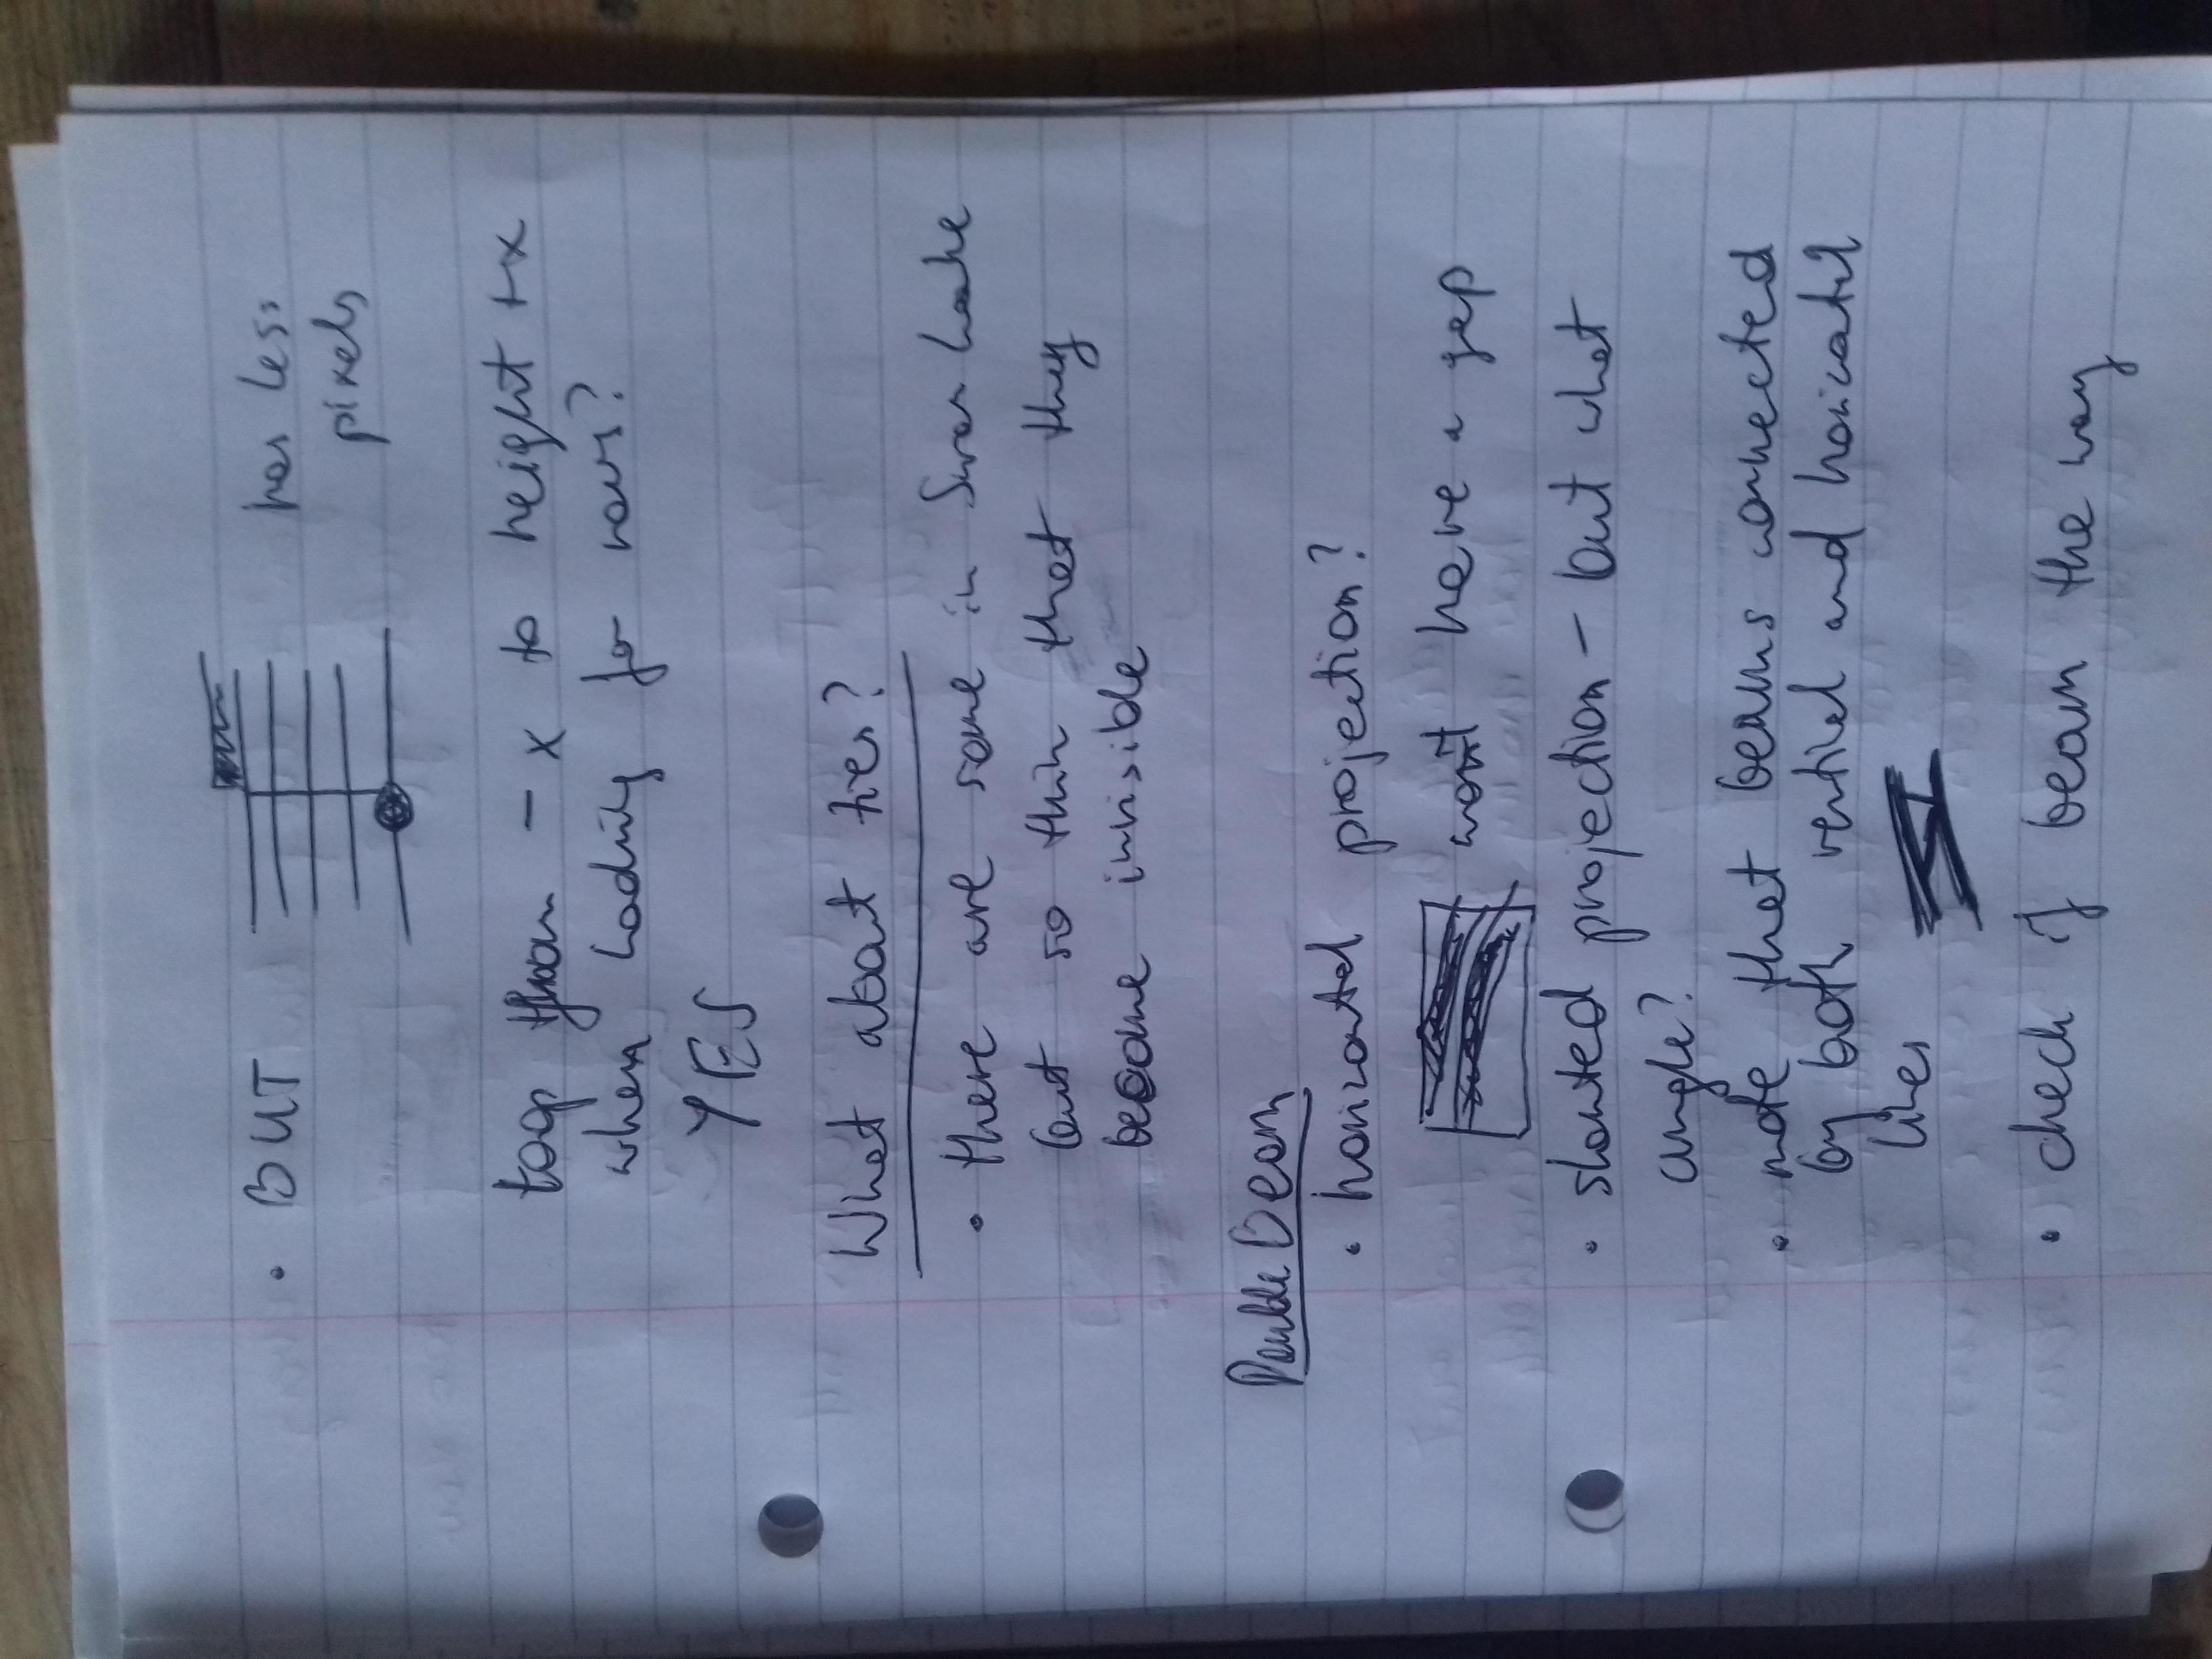 • BUT has less
pixels
loop from - x to height + x
when looking for rows?
YES
What about ties?
• there are some in Swan Lake
but so thin that they
become invisible
Double Beam
• horizontal projection?
won't have a gap
• slanted projection – but what
angle?
• note that beams connected
by both vertical and horizontal
lines
• check if beam the way